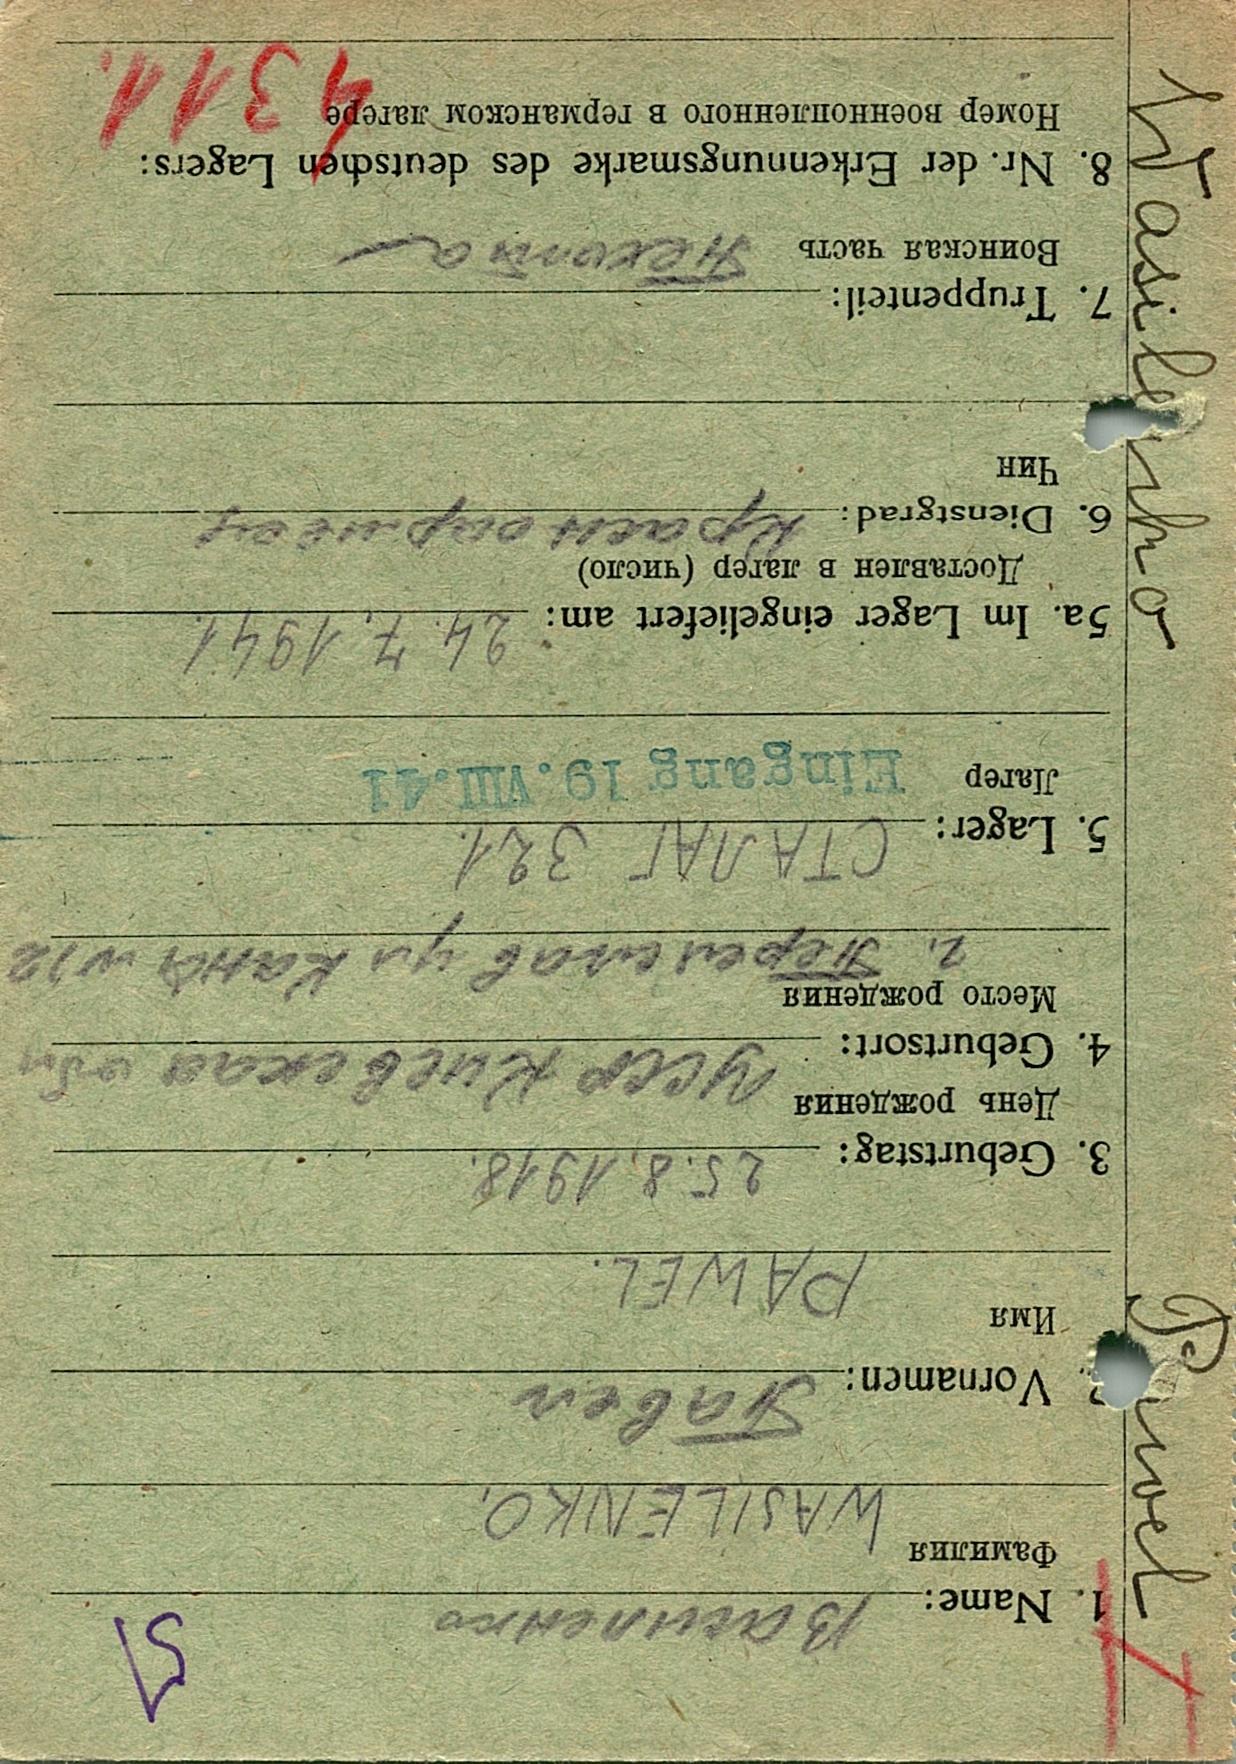 1. Name: Василенко
Фамилия
WASILENKO,
Vornamen: Павел
Имя
PAWEL.
3. Geburtstag: 25.8.1918.
День рождения
4. Geburtsort: УССР Киевская обл
Место рождения
г. Переяслав ул
5. Lager: СТАЛАГ 321.
Лагер
Eingang 19. VIII. 41
5a. Im Lager eingeliefert am: 24.7.1941.
Доставлен в лагер (число)
6. Dienstgrad: Красноармеец
Чин
7. Truppenteil:
Воинская часть Пехота
8. Nr. der Erkennungsmarke des deutschen Lagers:
Номер военнопленного в германском лагере
4311.
Pawel Wasilenko